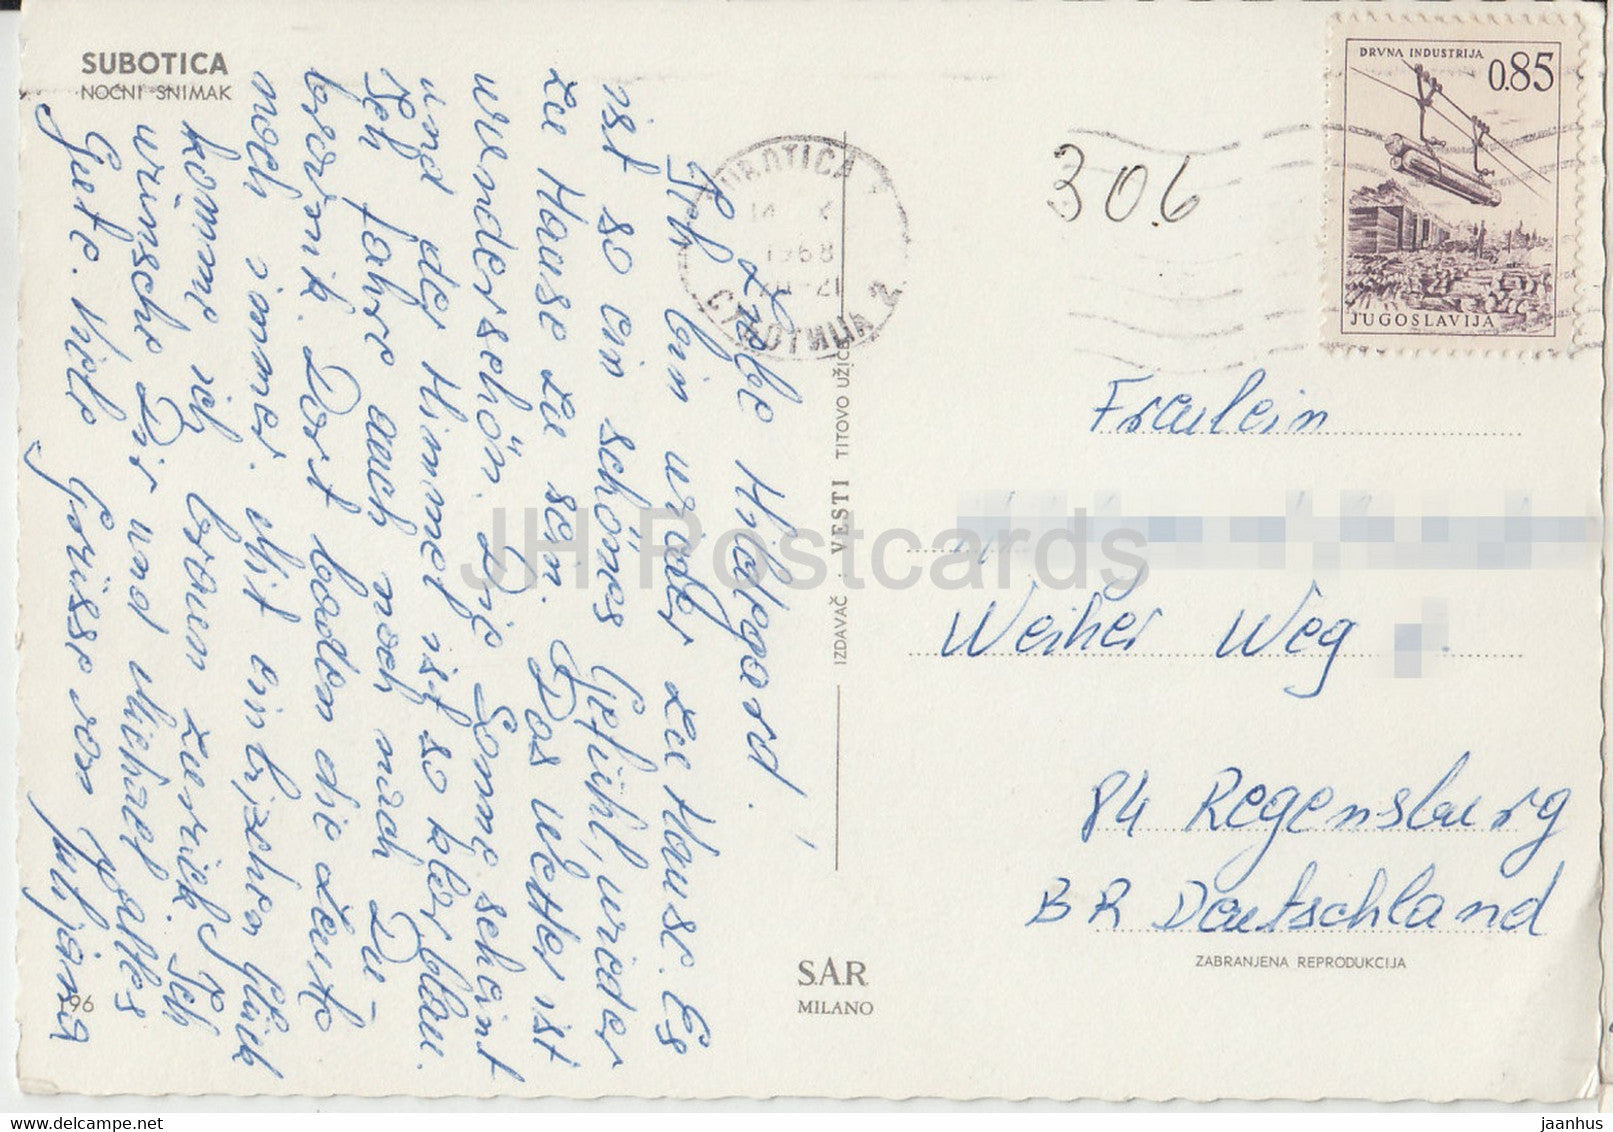 SUBOTICA
NOĆNI SNIMAK
Liebe Hildegard!
Ich bin wider zu Hause. Es
ist so ein schönes Gefühl, wider
zu Hause zu sein. Das Wetter ist
wunderschön. Die Sonne scheint
und der Himmel ist so klar, blau.
Ich fahre auch noch nach Du-
brovnik. Dort baden die Leute
noch immer. Mit ein bizchen Glück
komme ich braun zurück. Ich
wünsche Dir und Michael alles
Gute. Viele Grüsse von
96
DRVNA INDUSTRIJA
0.85
JUGOSLAVIJA
SUBOTICA
1968
СУБОТИЦА 2
306
Fräulein
Weiher Weg
84 Regensburg
BR Deutschland
ZABRANJENA REPRODUKCIJA
IZDAVAČ · VESTI TITOVO UŽICE
S.A.R.
MILANO
JH Postcards
www.delcampe.net
jaanhus